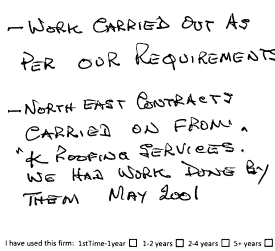 - WORK CARRIED OUT AS
PER OUR REQUIREMENTS
- NORTH EAST CONTRACTS
CARRIED ON FROM.
"K ROOFING SERVICES.
WE HAD WORK DONE BY
THEM MAY 2001
I have used this firm: 1stTime-1year ☐ 1-2 years ☐ 2-4 years ☐ 5+ years ☐